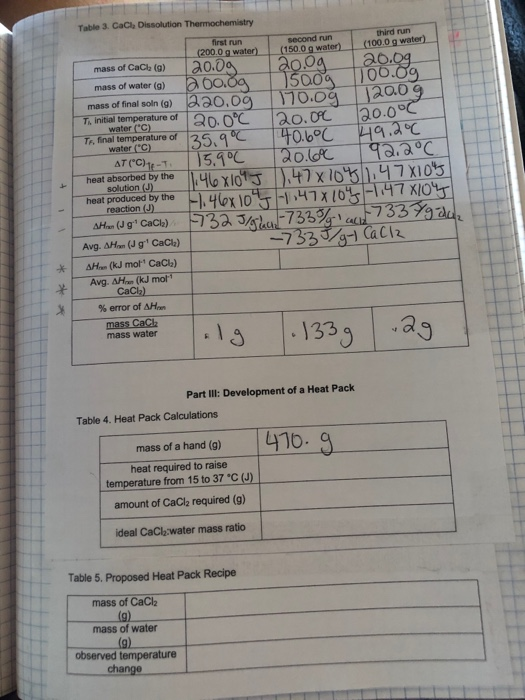 Table 3. CaCl₂ Dissolution Thermochemistry
first run (200.0 g water) second run (150.0 g water) third run (100.0 g water)
mass of CaCl₂ (g) 20.0g 20.0g 20.0g
mass of water (g) 200.0g 150.0g 100.0g
mass of final soln (g) 220.0g 170.0g 120.0g
Tᵢ, initial temperature of water (°C) 20.0°C 20.0°C 20.0°C
T_F, final temperature of water (°C) 35.9°C 40.6°C 49.2°C
ΔT (°C) Tf-Ti 15.9°C 20.6°C 92.2°C
heat absorbed by the solution (J) 1.46 x10⁴ J 1.47 x 10⁴J 1.47 x10⁴J
heat produced by the reaction (J) -1.46x10⁴J -1.47x10⁴J -1.47 x10⁴J
ΔHrxn (J g⁻¹ CaCl₂) -732 J/g -733 J/g-1 -733 J/g
Avg. ΔHrxn (J g⁻¹ CaCl₂) -733 J/g-1 CaCl2
ΔHrxn (kJ mol⁻¹ CaCl₂)
Avg. ΔHrxn (kJ mol⁻¹ CaCl₂)
% error of ΔHrxn
mass CaCl₂
mass water .1g .133g .2g
Part III: Development of a Heat Pack
Table 4. Heat Pack Calculations
mass of a hand (g) 470. g
heat required to raise
temperature from 15 to 37 °C (J)
amount of CaCl₂ required (g)
ideal CaCl₂:water mass ratio
Table 5. Proposed Heat Pack Recipe
mass of CaCl₂
(g)
mass of water
(g)
observed temperature
change